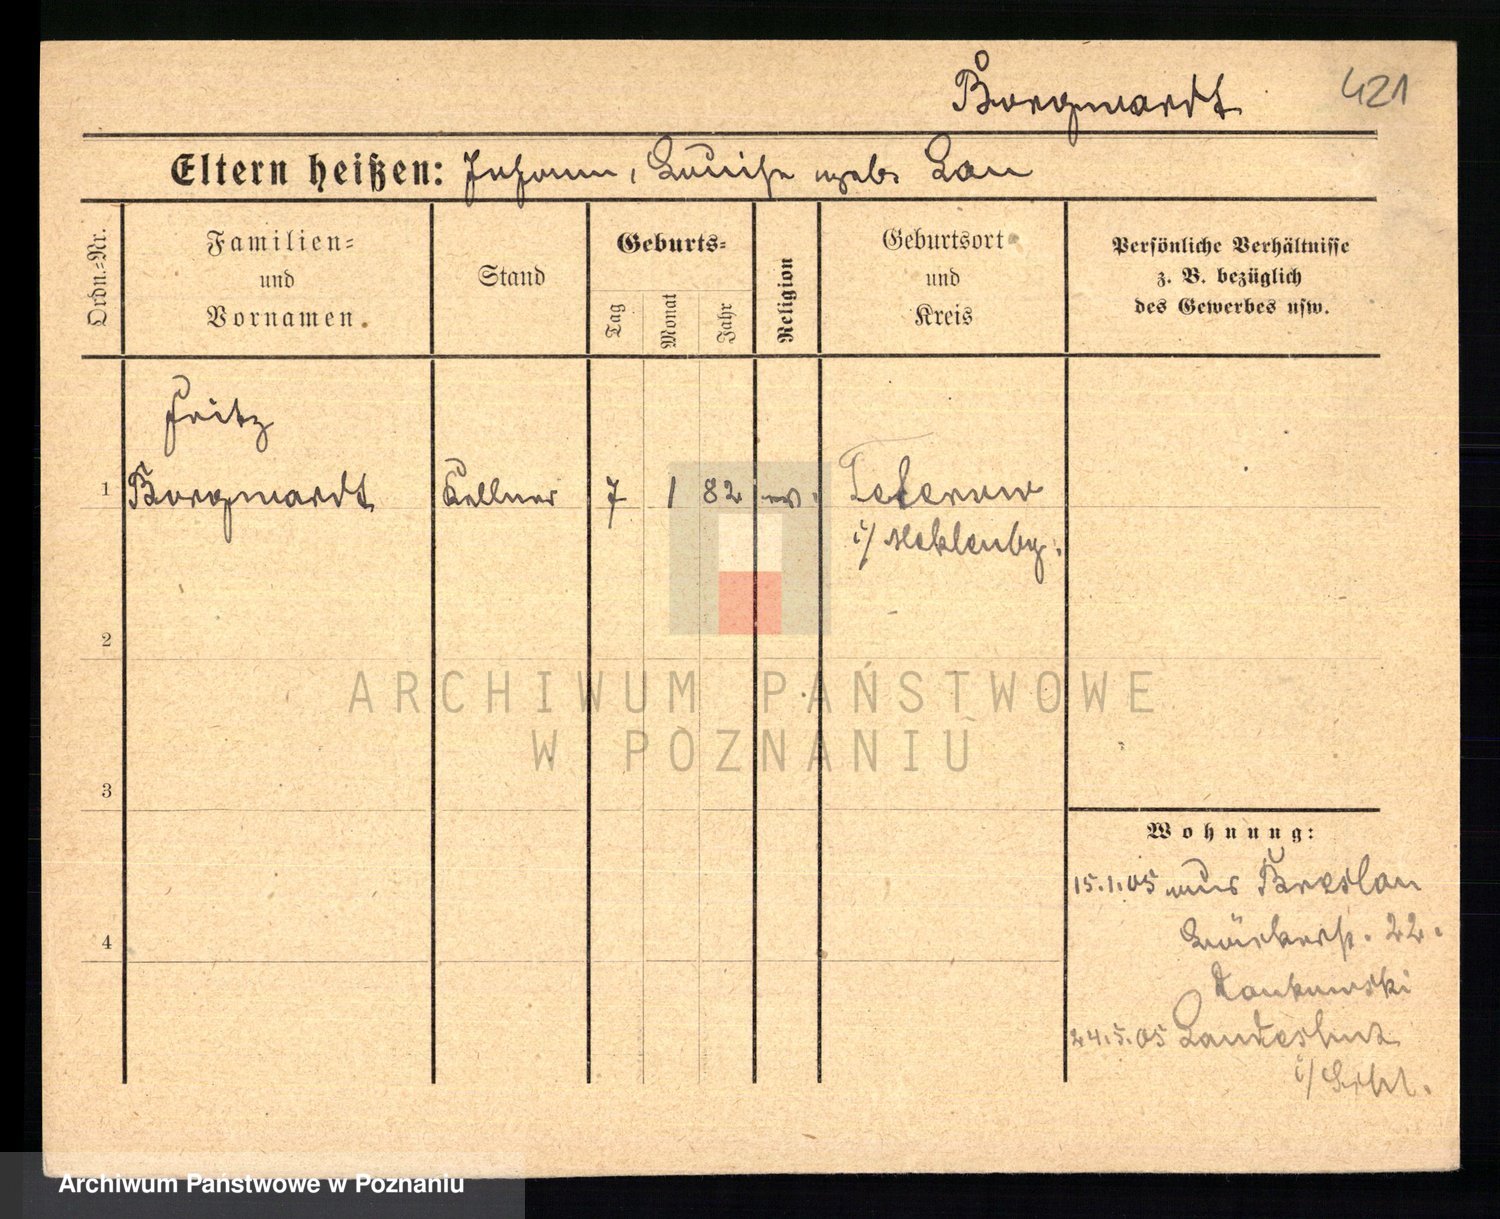 Borgwardt
421
Eltern heißen: Johann, Louise geb. Lau
Ordn.-Nr.
Familien-
und
Vornamen.
Stand
Geburts-
Tag
Monat
Jahr
Religion
Geburtsort
und
Kreis
Persönliche Verhältnisse
z. B. bezüglich
des Gewerbes usw.
Fritz
1 Borgwardt Kellner 7 1 82 ev. Teterow
i/ Meklenbg.
2
3
4
Wohnung:
15.1.05 aus Breslau
22.
24.5.05 Landeshut
i/ Schl.
ARCHIWUM PAŃSTWOWE
W POZNANIU
Archiwum Państwowe w Poznaniu